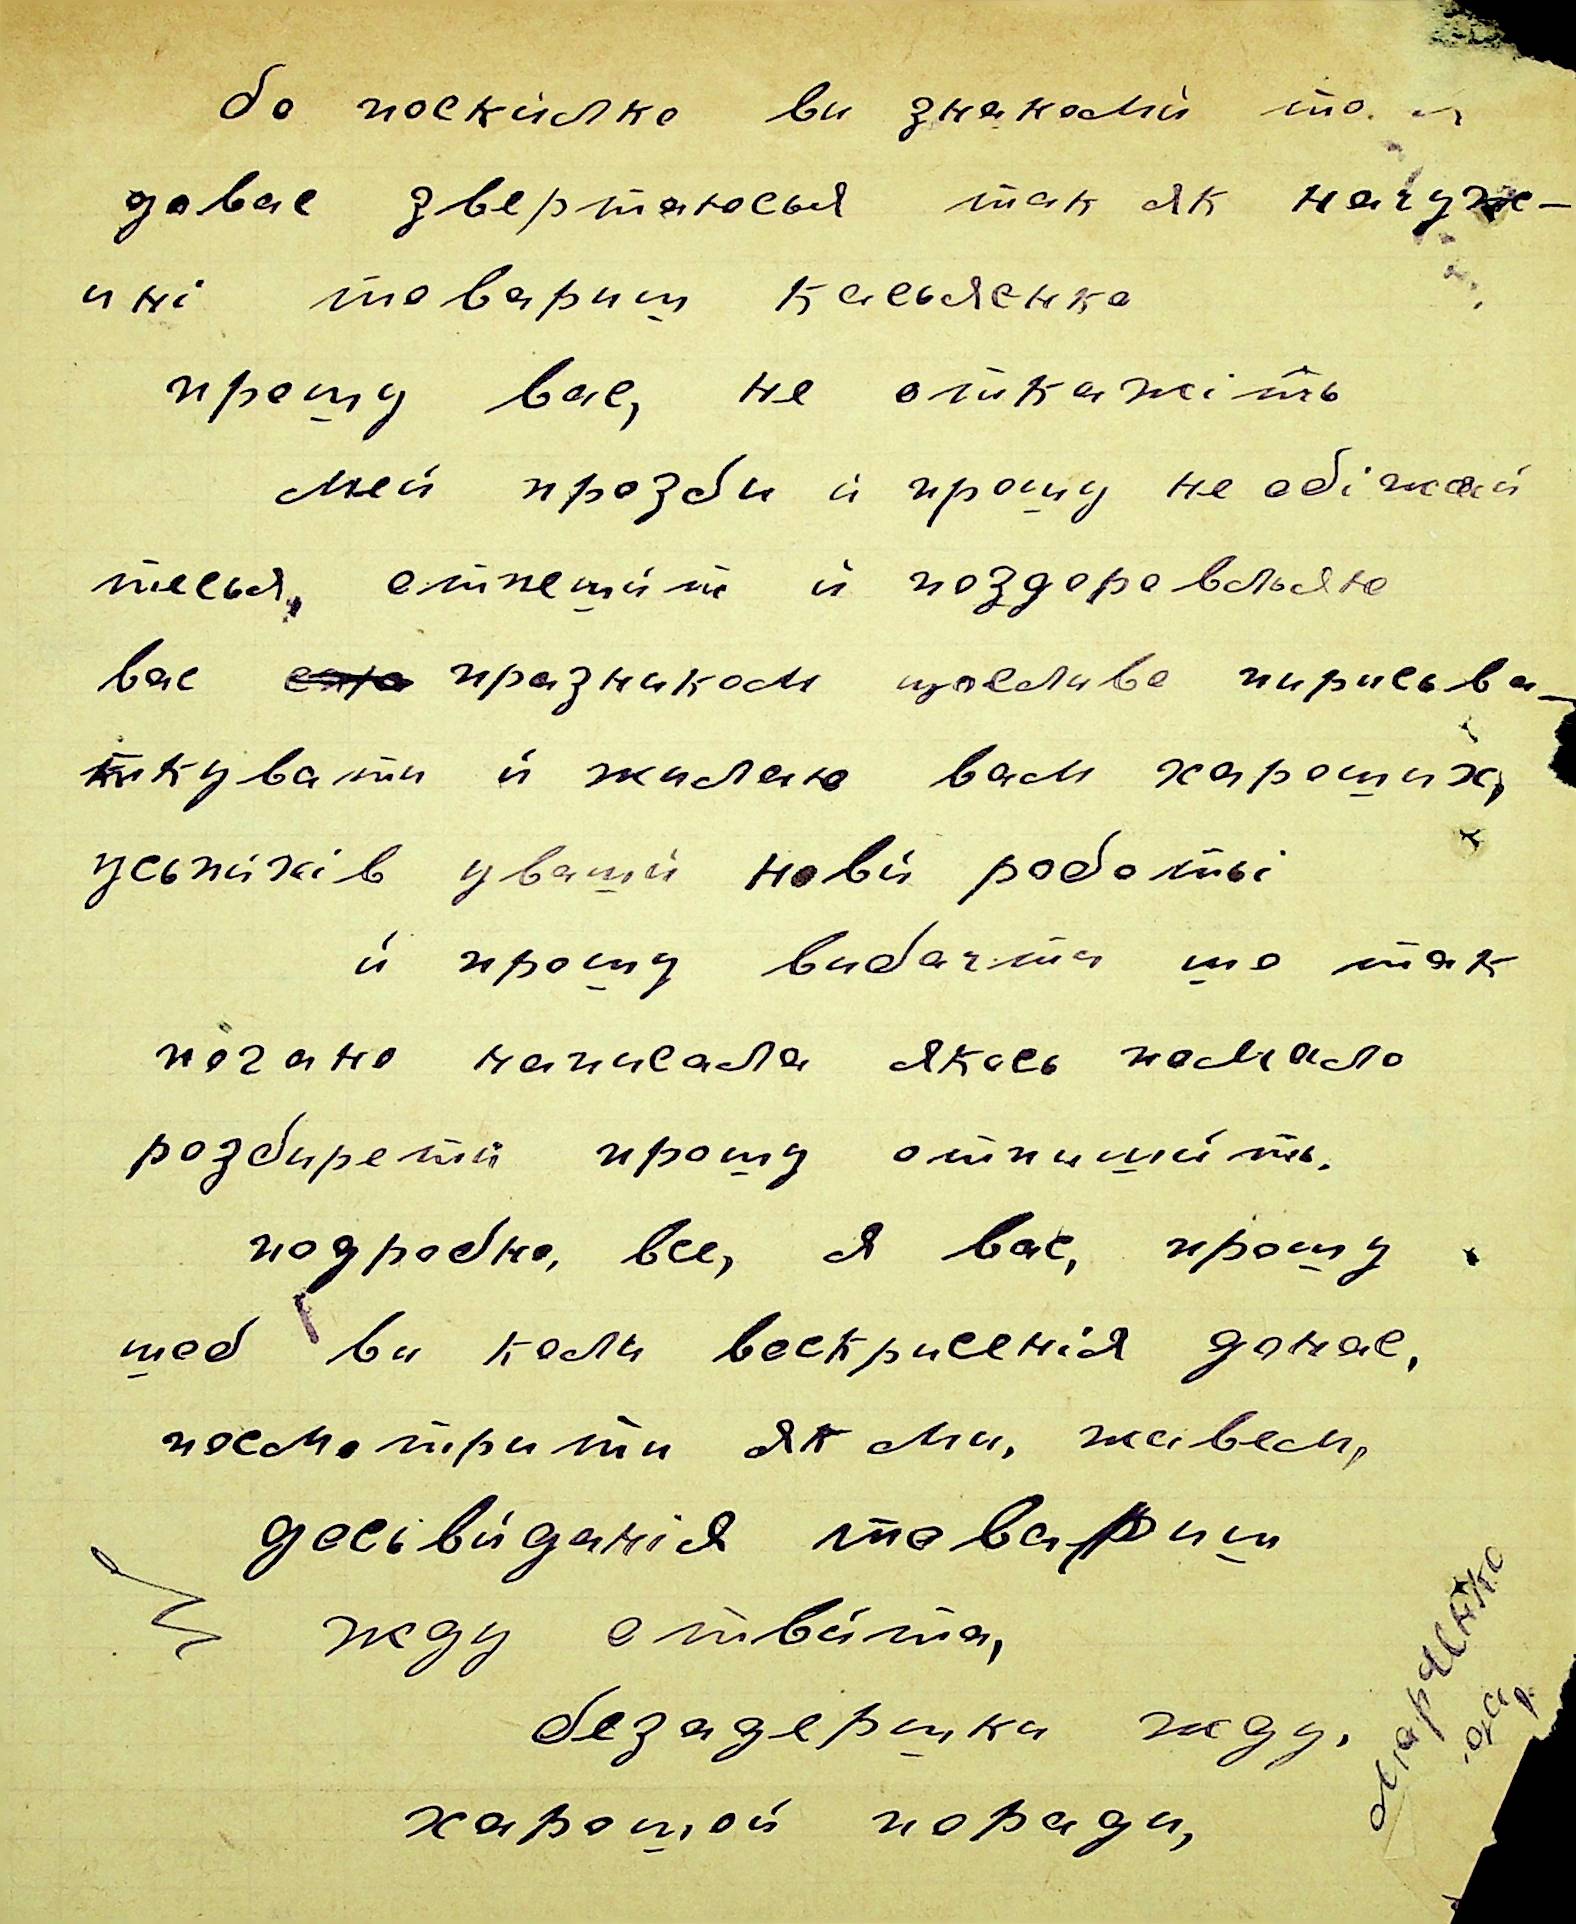 бо поскилко ви знакоми то я
довас звертаюсья так як начуж-
ині товариш касьяенко
прошу вас, не откажіть
моей прозби и прошу не обіжай
тесья, отпешит и поздоровльяю
вас празником щосливо пирисьва-
ткувати и жилаю вам харошых,
усьпихів уваши нови роботьі
и прошу вибачти шо так
погано написала якось помало
розбирети прошу отпишить.
подробно, все, я вас, прошу
шоб ви коли воскрисенія донас,
посмотрити як ми, живем,
досьвиданія товариш
жду отвита,
безадершки жду.
харошой поради,